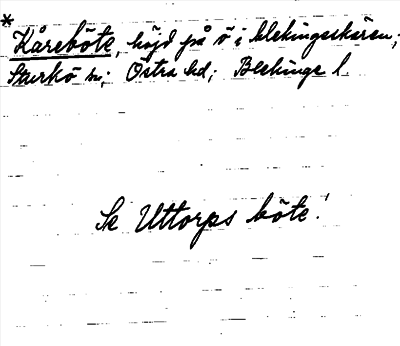 * Kårebôte, höjd på ö i blekingeskären;
Sturkö sn; Östra hd; Blekinge l.
Se Uttorps böte!